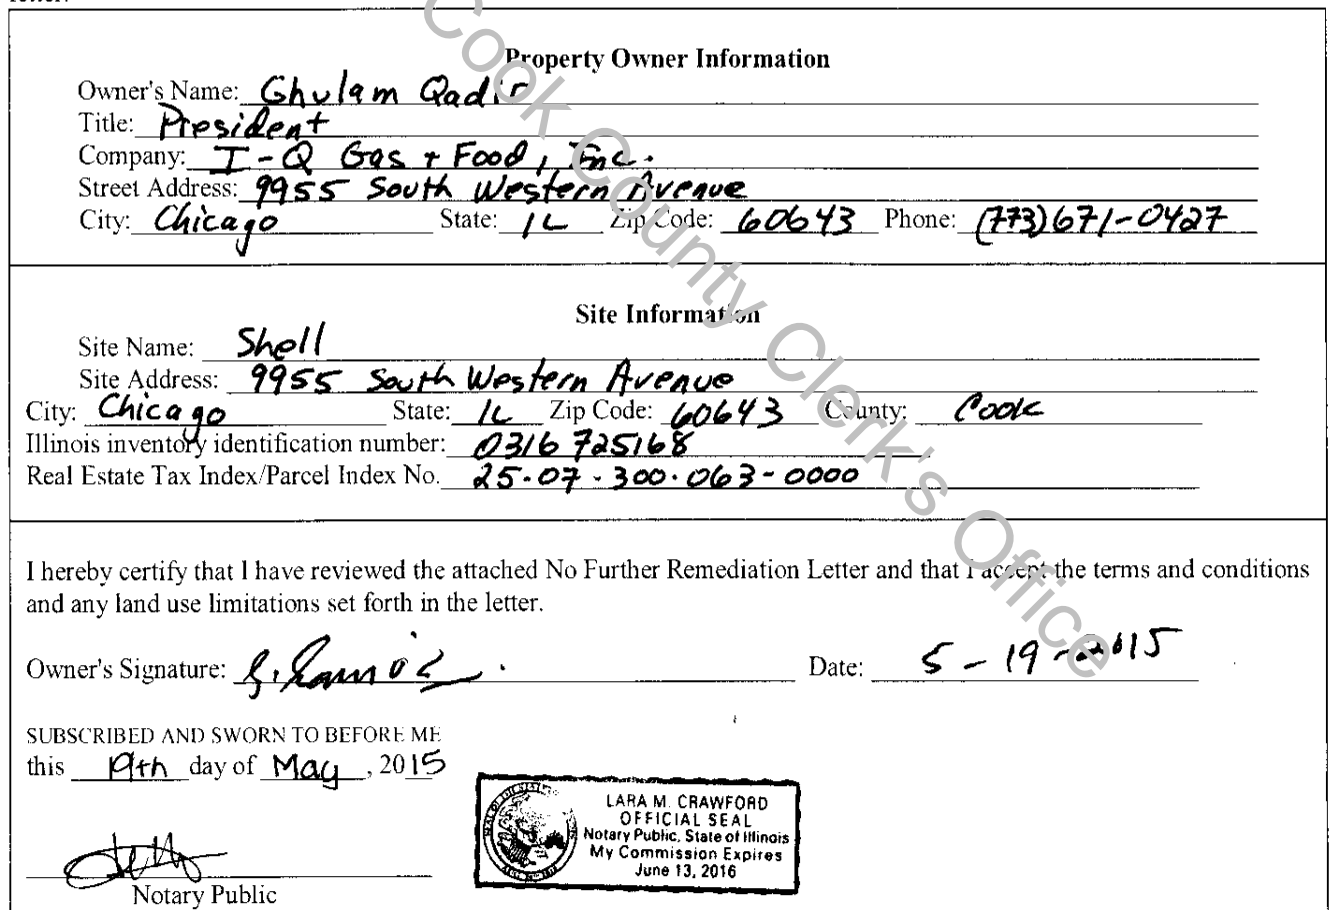 Property Owner Information
Owner's Name: Ghulam Qadir
Title: President
Company: I-Q Gas + Food, Inc.
Street Address: 9955 South Western Avenue
City: Chicago State: IL Zip Code: 60643 Phone: (773)671-0427
Site Information
Site Name: Shell
Site Address: 9955 South Western Avenue
City: Chicago State: IL Zip Code: 60643 County: Cook
Illinois inventory identification number: 0316725168
Real Estate Tax Index/Parcel Index No. 25-07-300-063-0000
I hereby certify that I have reviewed the attached No Further Remediation Letter and that I accept the terms and conditions
and any land use limitations set forth in the letter.
Owner's Signature: Date: 5-19-2015
SUBSCRIBED AND SWORN TO BEFORE ME
this 19th day of May, 2015
LARA M. CRAWFORD
OFFICIAL SEAL
Notary Public, State of Illinois
My Commission Expires
June 13, 2016
Notary Public
Cook County Clerk's Office